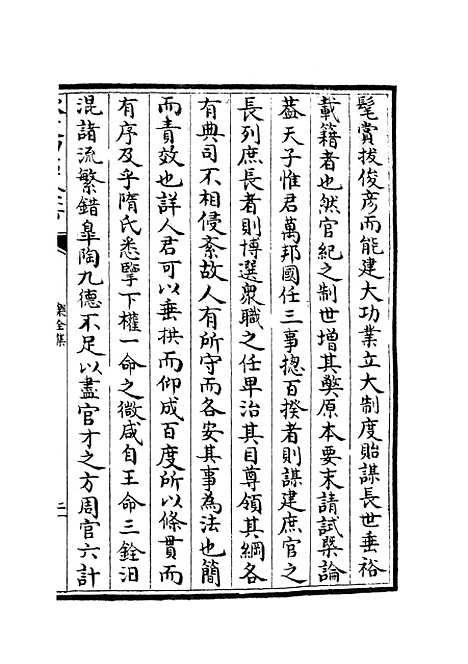 髦賞拔俊彦而能建大功業立大制度貽謀長世垂裕
載籍者也然官紀之制世增其獘原本要末請試槩論
葢天子惟君萬邦國任三事揔百揆者則謀建庶官之
長列庶長者則博選衆職之任卑治其目尊領其綱各
有典司不相侵紊故人有所守而各安其事為法也簡
而責效也詳人君可以垂拱而仰成百度所以條貫而
有序及乎隋氏悉擥下權一命之微咸自王命三銓汨
混諸流繁錯臯陶九德不足以盡官才之方周官六計
樂全集